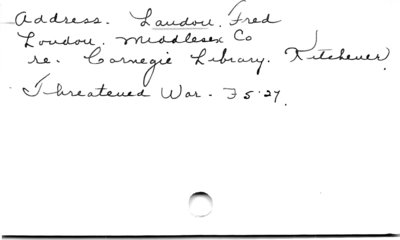 Address. Landon, Fred
London. Middlesex Co
re. Carnegie Library. Kitchener
Threatened War. F5.27.